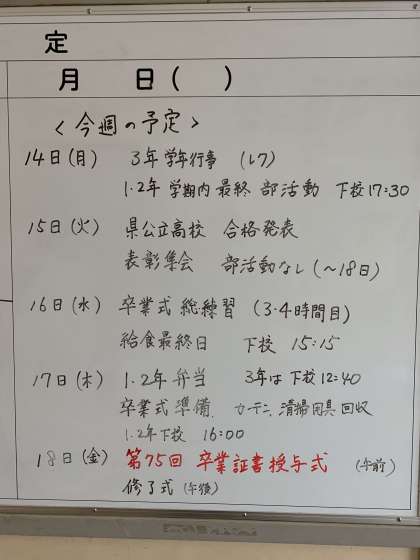 定
月 日( )
<今週の予定>
14日(月) 3年学年行事 (レク)
1・2年 学期内最終 部活動 下校17:30
15日(火) 県公立高校 合格発表
表彰集会 部活動なし(~18日)
16日(水) 卒業式 総練習 (3・4時間目)
給食最終日 下校 15:15
17日(木) 1・2年弁当 3年は下校12:40
卒業式準備. カーテン, 清掃用具回収
1・2年下校 16:00
18日(金) 第75回 卒業証書授与式 (午前)
修了式(午後)